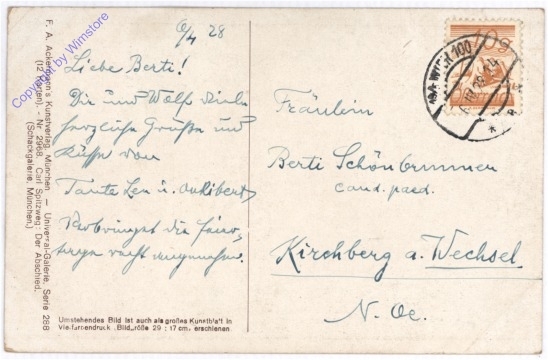 F. A. Ackermann's Kunstverlag, München. — Universal-Galerie, Serie 268
(12 Karten). - Nr. 2968. Carl Spitzweg: Der Abschied.
(Schackgalerie, München.)
Copyright by Wimstore
9/4 28
Liebe Berti!
Dir und Wolf viele
herzliche Grüße und
Küsse von
Tante Len u.
Verbringst die Feier-
tage recht angenehm.
Umstehendes Bild ist auch als großes Kunstblatt in
Vielfarbendruck, Bildgröße 29 : 17 cm, erschienen.
10g
WIEN 100
Fräulein
Berti Schönbrunner
cand. paed.
Kirchberg a. Wechsel
N. Oe.